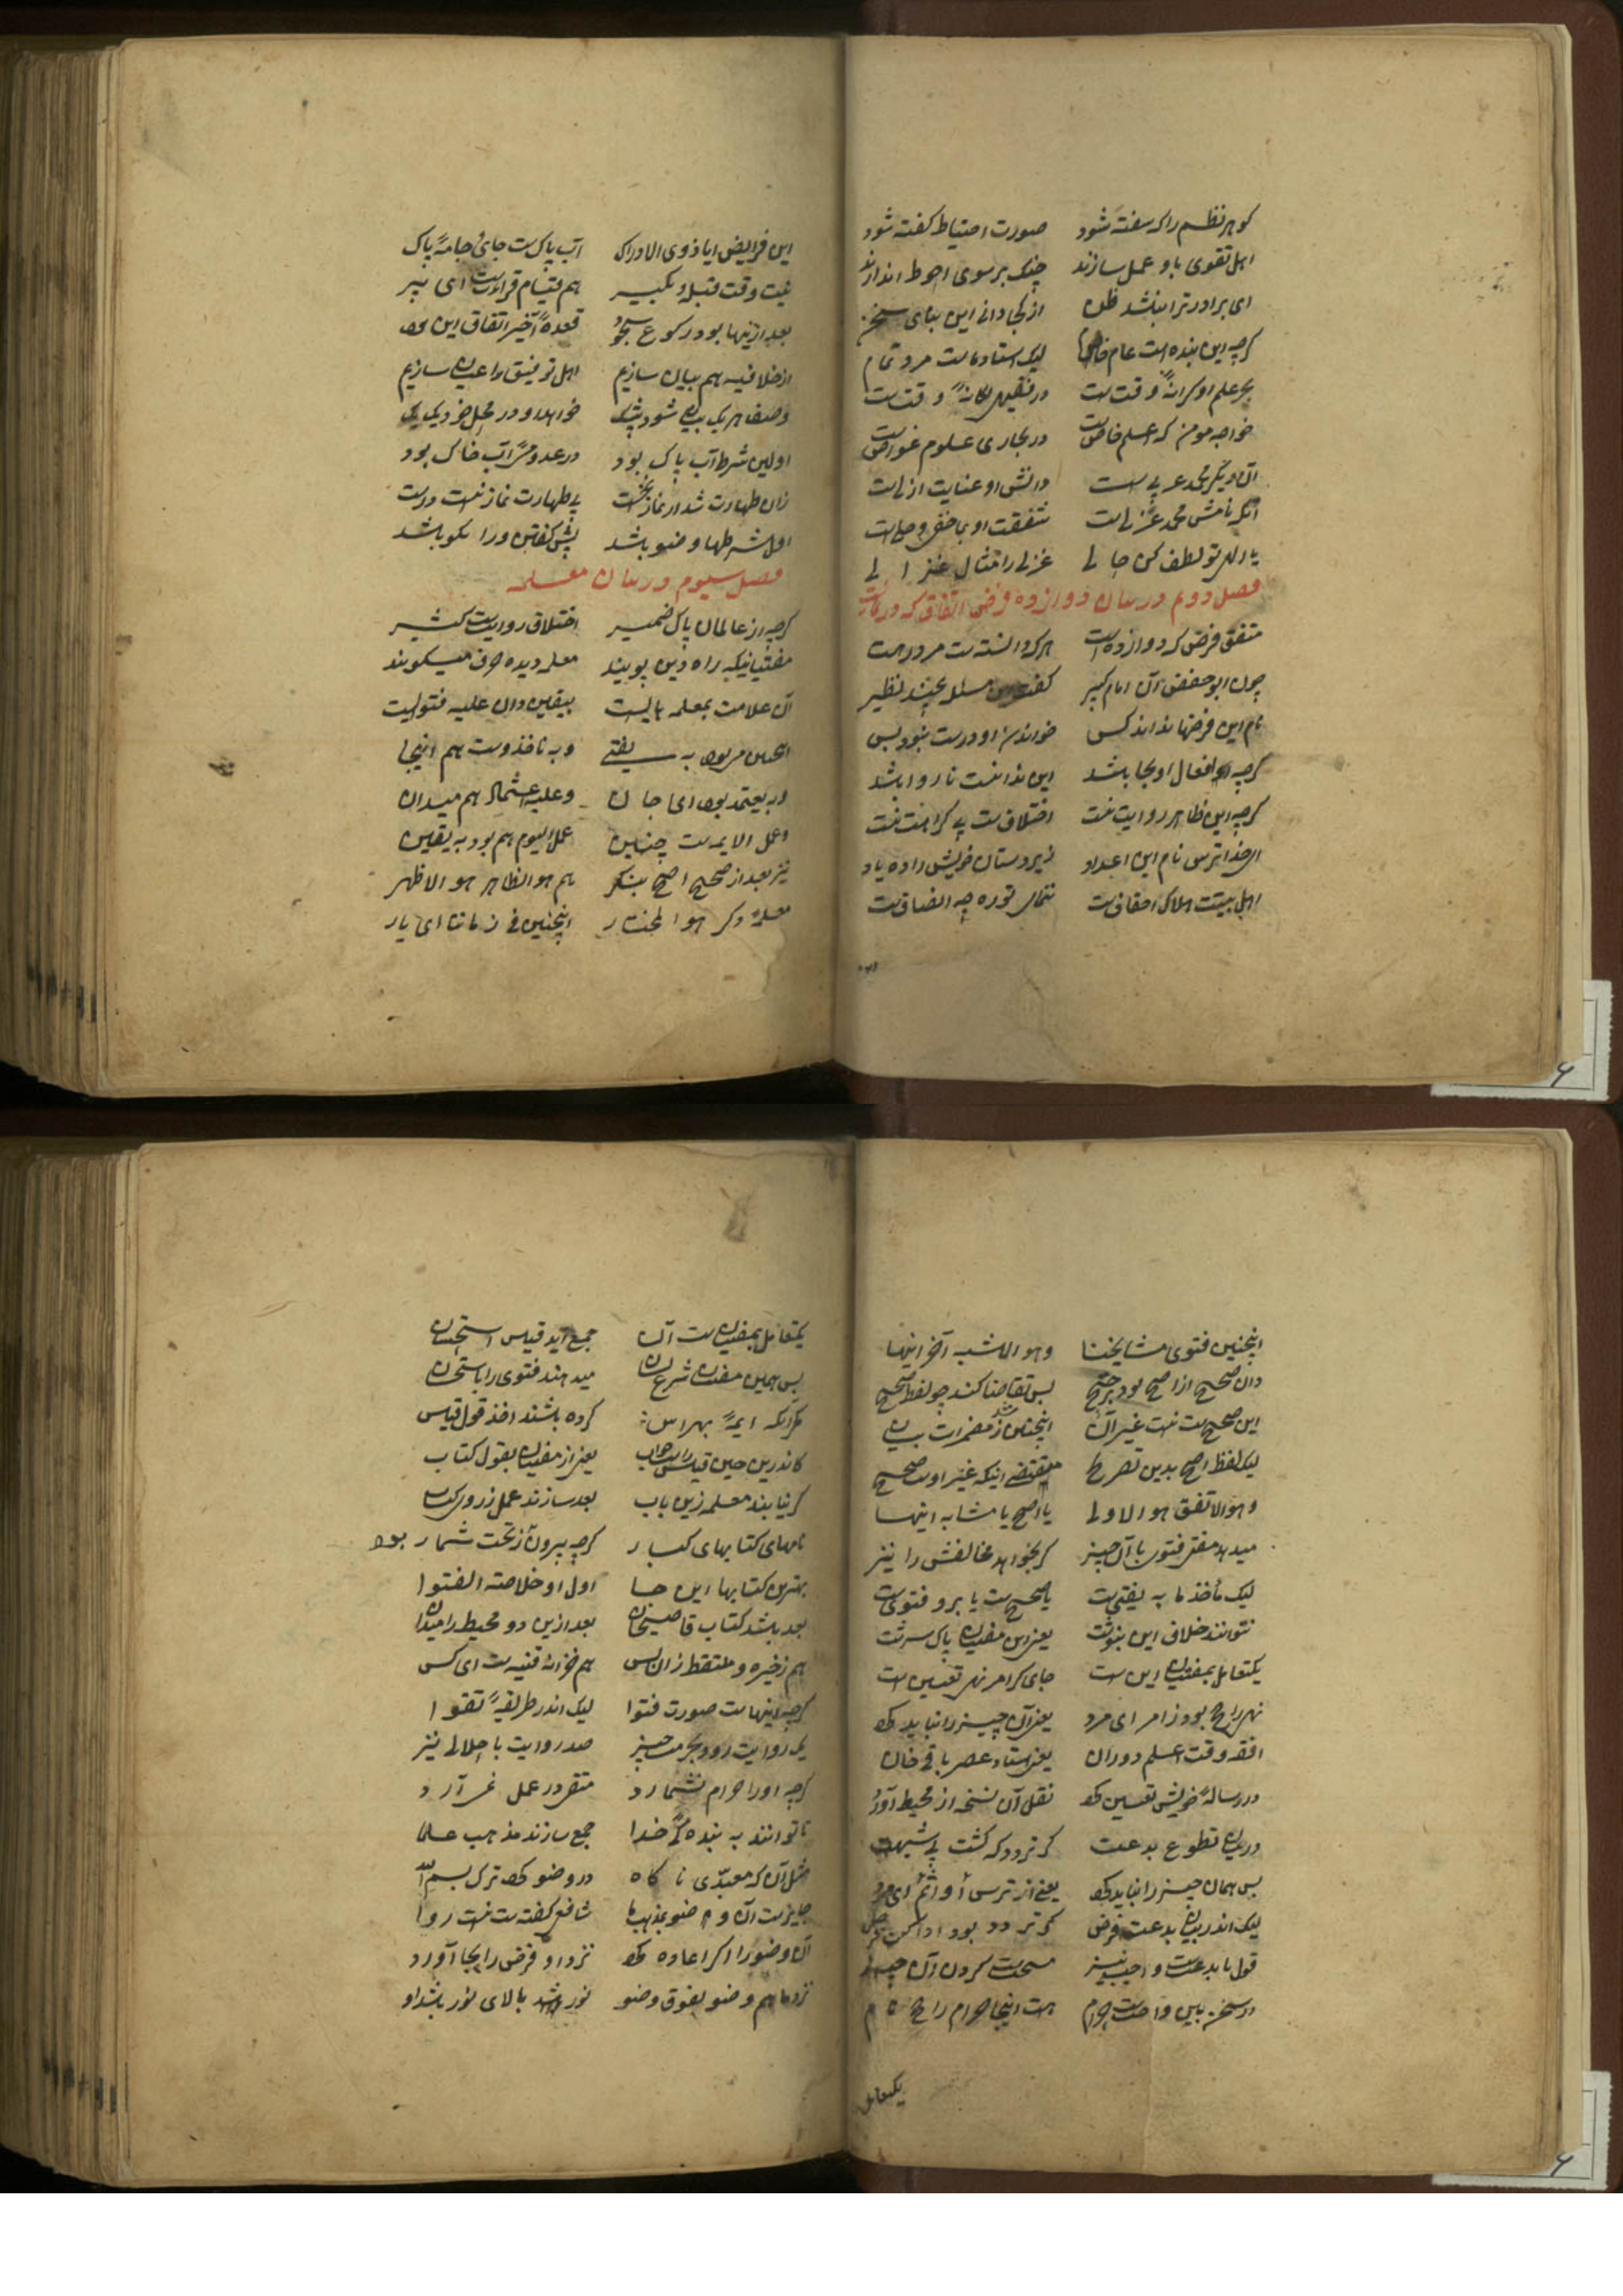 گوهر نظم را که سفته شود صورت احتیاط گفته شود
اهل تقوی باو عمل سازند چنک بر سوی احوط اندازند
ای برادر ترا نباشد ظن از کجا دانی این بنای سخن
گرچه این بنده است عام لیک استاد ماست مرد تمام
بحر علم او کرانهٔ وقتست در فقیهی یکانهٔ وقتست
خواجه مومن که علم خاصست در بحاری علوم غواصست
آن دیگر محمد عربی است دانش او عنایت ازلیست
آنکه نامش محمد غزلیست شفقت او بما خفی و جلیست
یا الهی تو لطف کن حالی غزلی را مثال غزالی
فصل دوم در بیان دوازده فرض اتفاقی که در نمازست
متفق فرض که دوازده است هر که دانسته است مرد رهست
چون ابو حفص آن امام کبیر گفت این مسئله بچند نظیر
نام این فرضها نداند کس خواندن او درست نبود بس
گرچه افعال او بجا باشد این ندانست ناروا باشد
گرچه این ظاهر روایت نیست اختلافست بی کراهت نیست
از خدا ترس نام این اعداد زیردستان خویش را ده یاد
اهل بیتت هلاک احقافست
این فرایض ایا ذوی الادراک آب پاکست جای جامهٔ پاک
نیت و وقت قبله و تکبیر هم قیام قراءت است ای پیر
بعد ازینها بود رکوع سجود قعدهٔ آخیر اتفاق این بود
از خلافیه هم بیان سازیم اهل توفیق را عیان سازیم
وصف هر یک بیان شود بیشک خواهد او در محل خود یک یک
اولین شرط آب پاک بود در عدو مرآب خاک بود
زان طهارت شد از نماز نخست بی طهارت نماز نیست درست
اول شرطها وضو باشد پیش گفتن ورا نکو باشد
فصل سیوم در بیان معلمه
گرچه از عالمان پاک ضمیر اختلاف روایتست کثیر
مفتیانیکه راه دین پویند معلمه دیده حرف میکویند
آن علامت بمعلمه بایست بیقین دان علیه فتویست
همچنین مربود به یفتی و به ناخذوست هم اینجا
و به یعتمد بود ای جان و علیه اعتماد هم میدان
و عمل الایمه ست چنین عمل الیوم هم بود به یقین
نیز بعد از صحیح اصح بنکر هم هو الظاهر هو الاظهر
معلمهٔ دکر هو المختار اینچنین فی زماننا ای یار
اینچنین فتوی مشایخنا و هو الاشبه آخر اینها
دان صحیح از اصح بود ترجیح بس تقاضا کند چو لفظ صحیح
این صحیح ست نیست غیر آن اینچنین شد ز مضمرات بیان
لیک لفظ اصح بدین تصریح مقتضی اینکه غیر اوست صحیح
و هو الاتفق هو الاولی یا اصح یا مشابه اینها
میدهد مفتی فتوی با آن چیز کر بخواهد مخالفش را نیز
لیک ماخذ ما به یفتی ست یا صحیح ست یا برو فتویست
نتوانند خلاف این بنوشت یعنی این مفتیان پاک سرشت
یکتعامل بمفتیان این ست جای کرامر نهی تعیین است
نهی راجح بود ز امر ای مرد یعنی آن چیز را نباید کرد
افقه وقت اعلم دوران یعنی استاد عصر باقی خان
در رسالهٔ خویش تعیین کرد نقل آن نسخه از محیط آورد
در میان تطوع بدعت کر تردد که کشت بی شبهت
بس همان چیز را نباید کرد یعنی از ترس او اثم ای مرد
لیک اندر میان بدعت فرض کر تردد بود ادا کن فرض
قول ما بدعتست و احب نیز مستحبست کردن آن چیز
در سخن بین واجبست حرام هست اینجا حرام راجح نام
یکتعامل
یکتعامل بمفتیان ست آن جمع آید قیاس استحسان
بس همین مفتیان شرع میدهند فتوی را باستحسان
مکر آنکه ایمهٔ بهر اس کرده باشند اخذ قول قیاس
کاندرین حین قیاس راست جواب یعنی از مفتیان بقول کتاب
کر نیابند معلمه زین باب بعد سازند عمل ز روی کتاب
نامهای کتابهای کبار گرچه بیرون ز تحت شمار بود
بهترین کتابها این جا اول او خلاصة الفتوا
بعد باشد کتاب قاضیخان بعد ازین دو محیط را میدان
هم ذخیره و ملتقط زان بس هم خزانه قنیه ست ای کس
گرچه اینهاست صورت فتوا لیک اندر طریقهٔ تقوا
یک روایت رود بحرمت چیز صد روایت با حلالی نیز
گرچه او را حرام نشمارد متقی در عمل نمی آرد
تا توانند به بندهٔ خدا جمع سازند مذهب علما
مثل آن که معبدی ناکاه در وضو کرد ترک بسم الله
جایز ست آن وضو بمذهب ما شافعی گفته ست نیست روا
آن وضو را اکر اعاده کرد نزد او فرض را بجا آورد
نزد ما هم وضو بفوق وضو نور باشد بالای نور باشد او